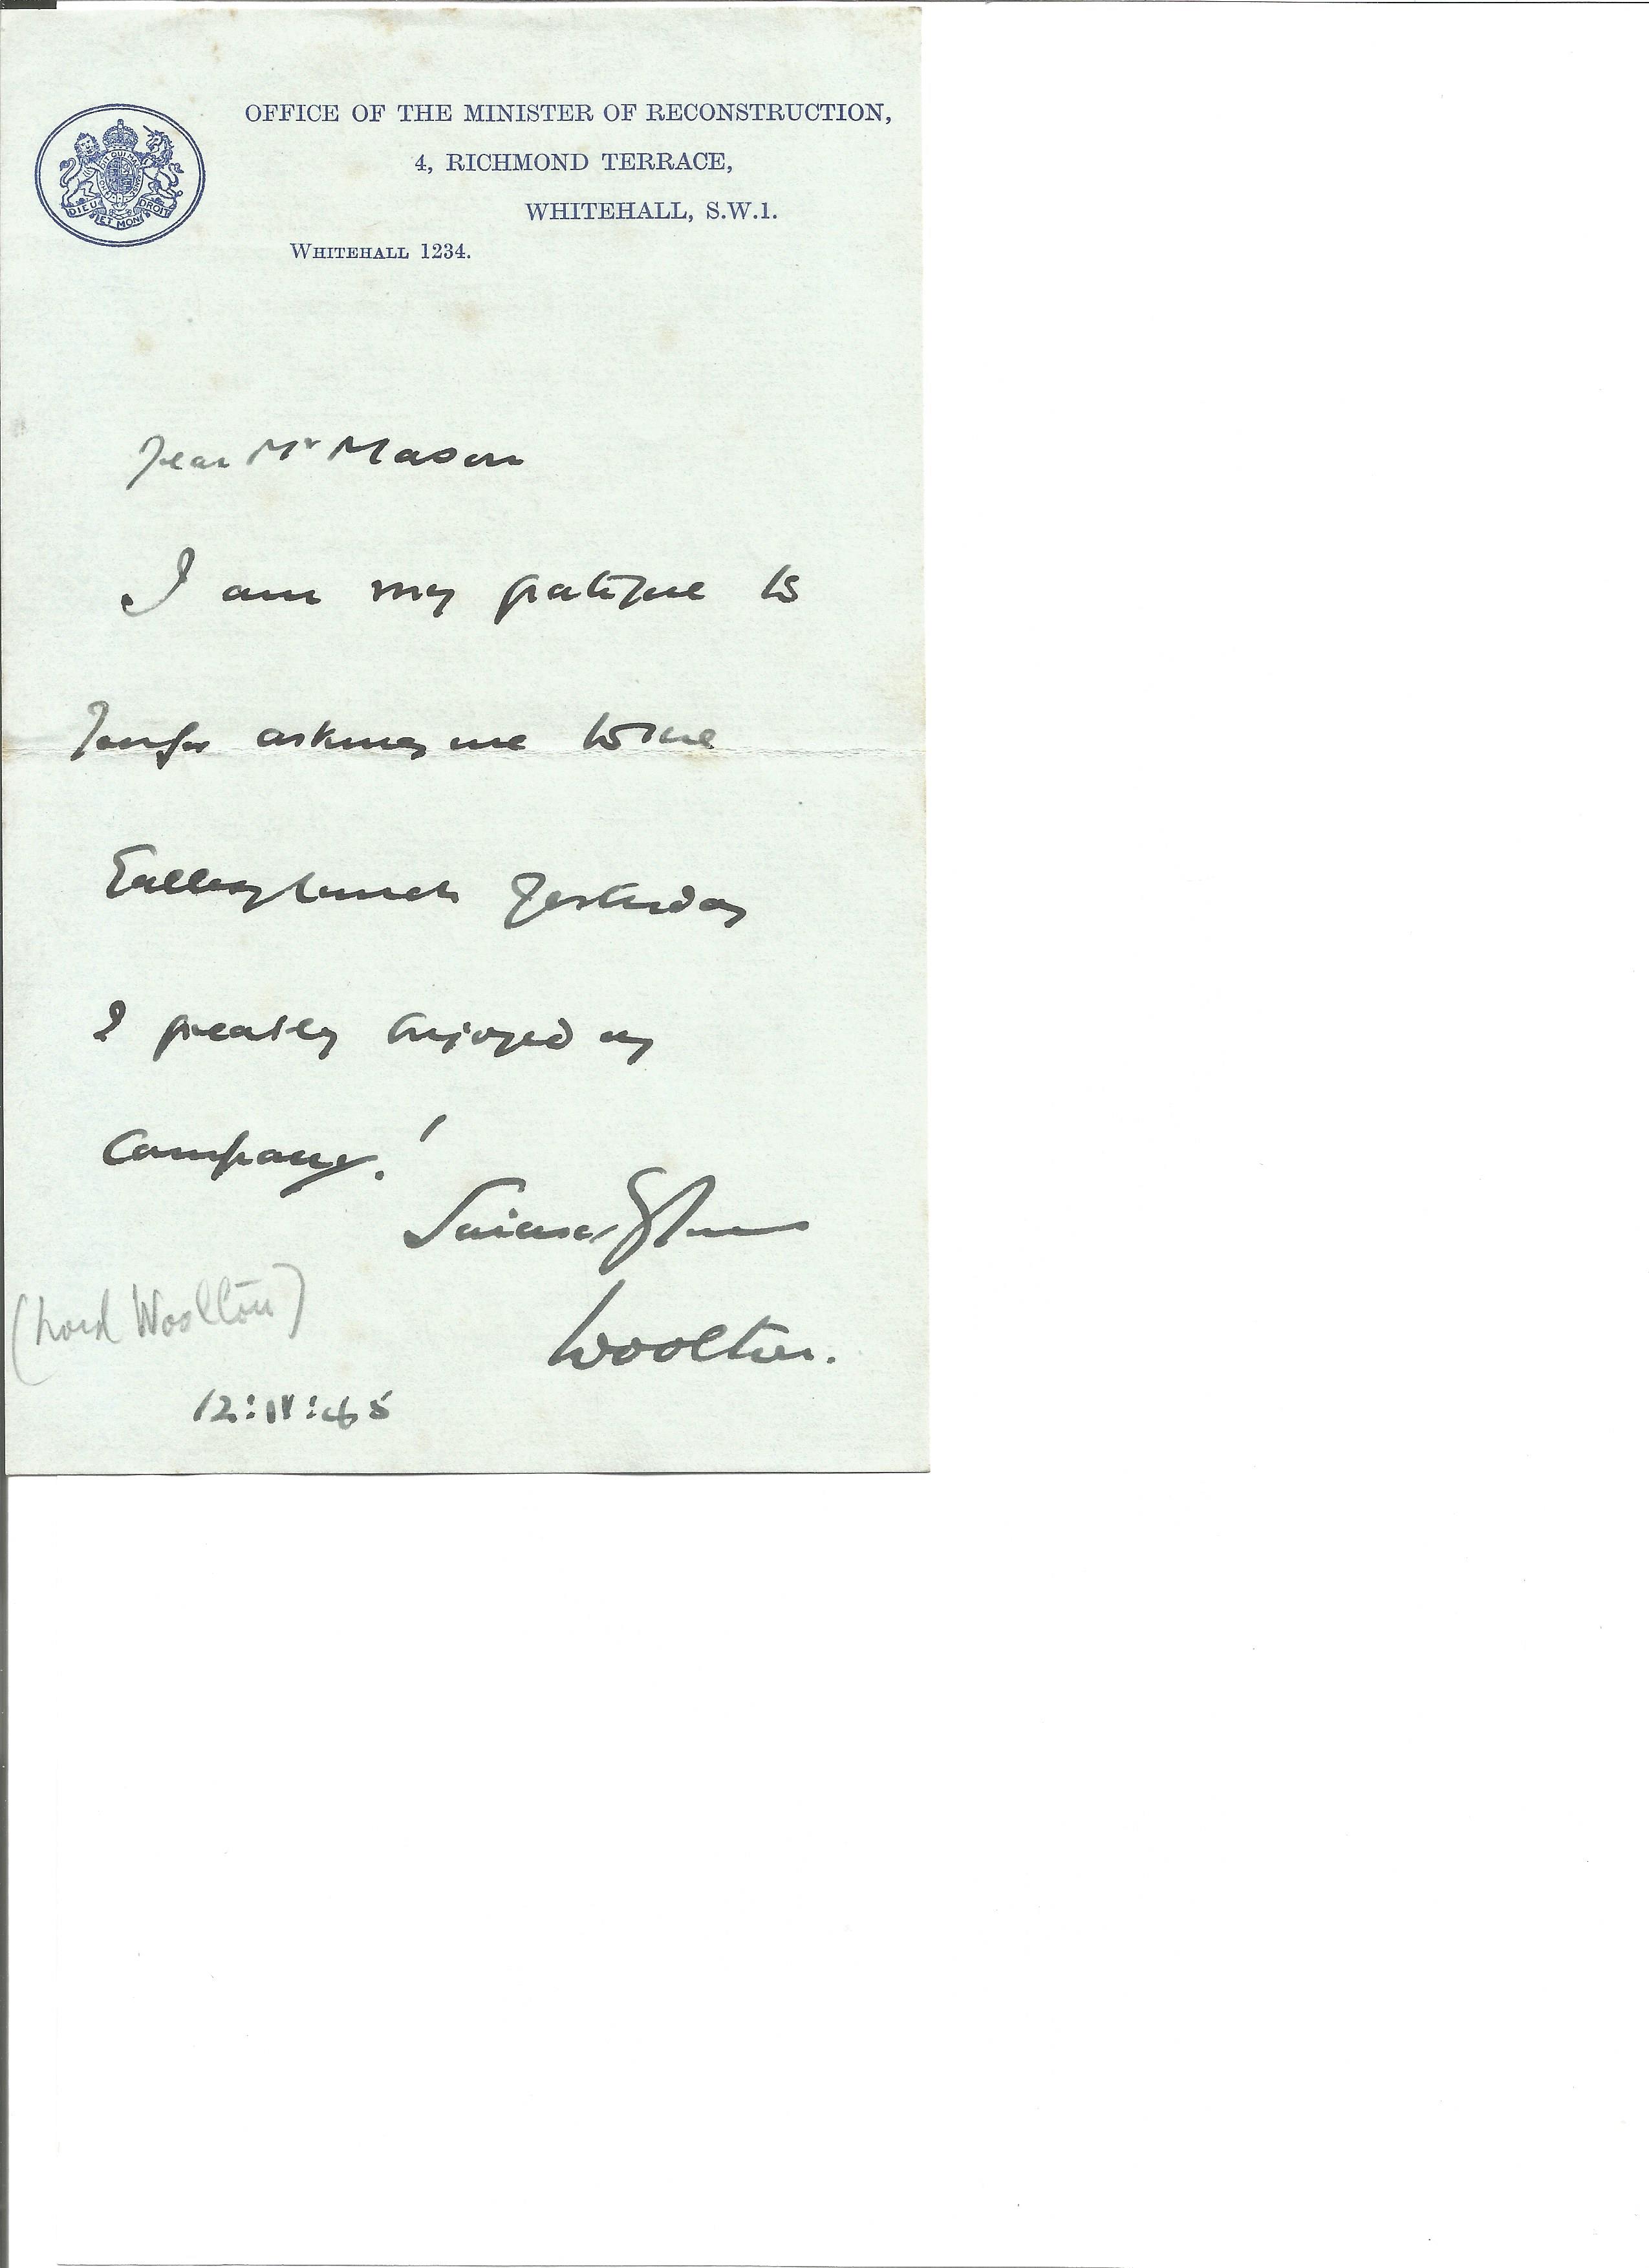 OFFICE OF THE MINISTER OF RECONSTRUCTION,
4, RICHMOND TERRACE,
WHITEHALL, S.W.1.
WHITEHALL 1234.
DIEU ET MON DROIT
Dear Mr Mason
I am very grateful to
you for asking me to the
lunch yesterday
I greatly enjoyed my
Company!
Sincerely Yours
Woolton.
(Lord Woolton)
12:IV:45